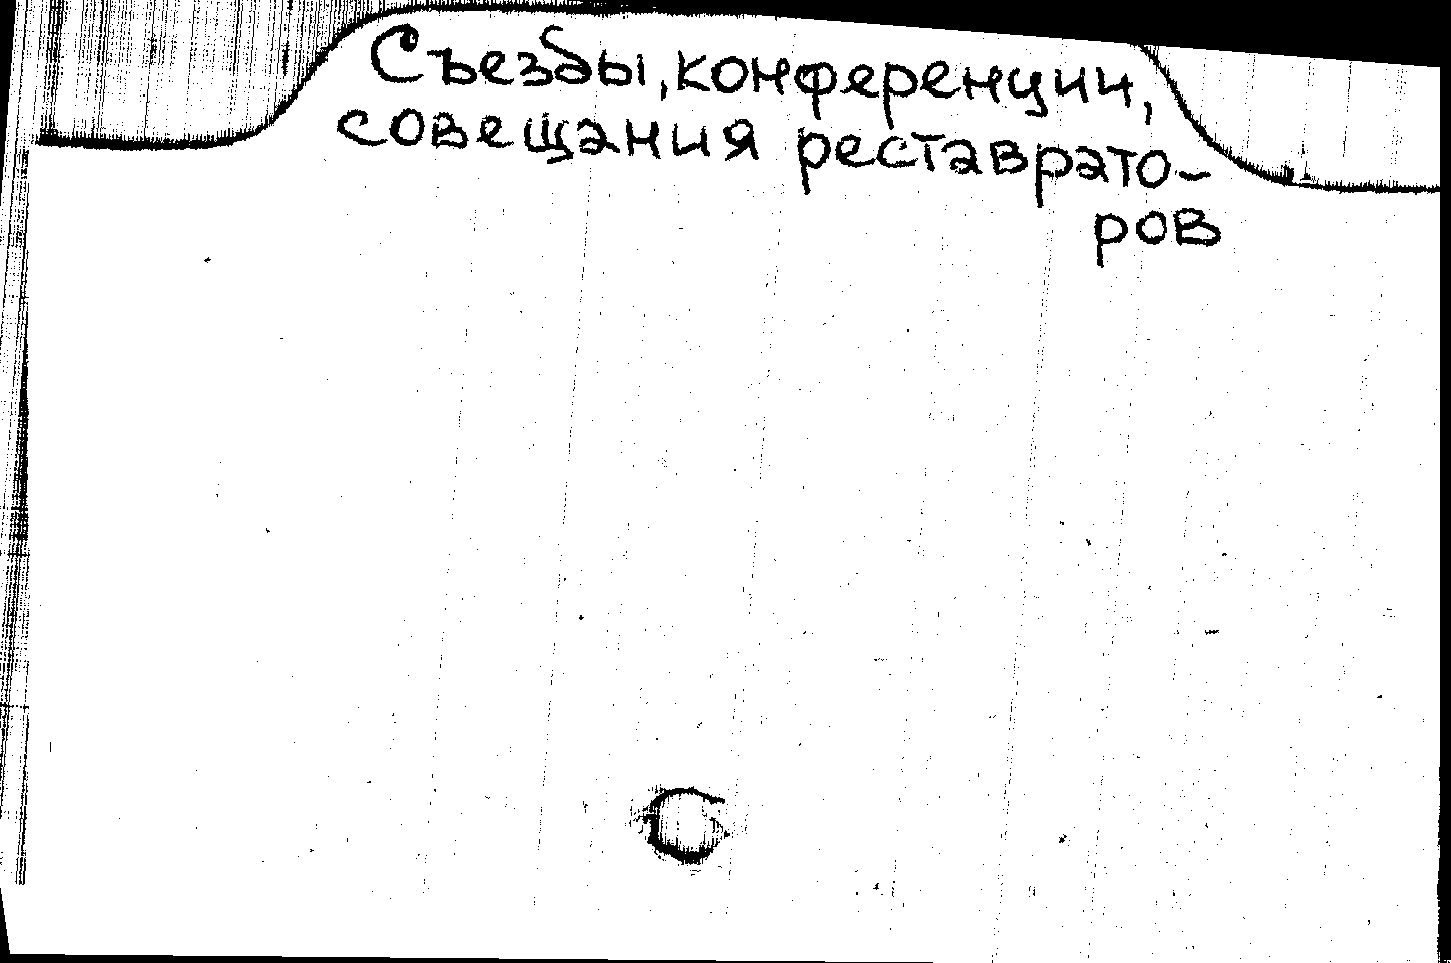 Съезды, конференции,
совещания реставрато-
ров